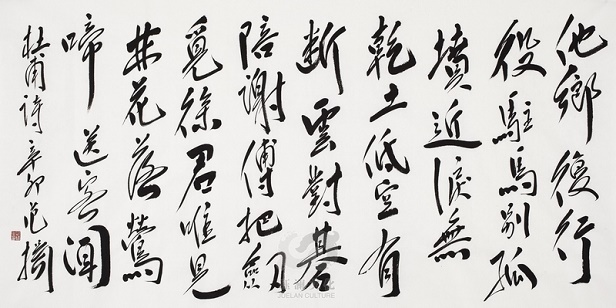 他鄉復行
役駐馬別孤
墳近淚無
乾土低空有
断雲對碁
陪謝傅把劍
覓徐君唯見
林花落鶯
啼送客聞
杜甫詩辛卯范
CULTURE